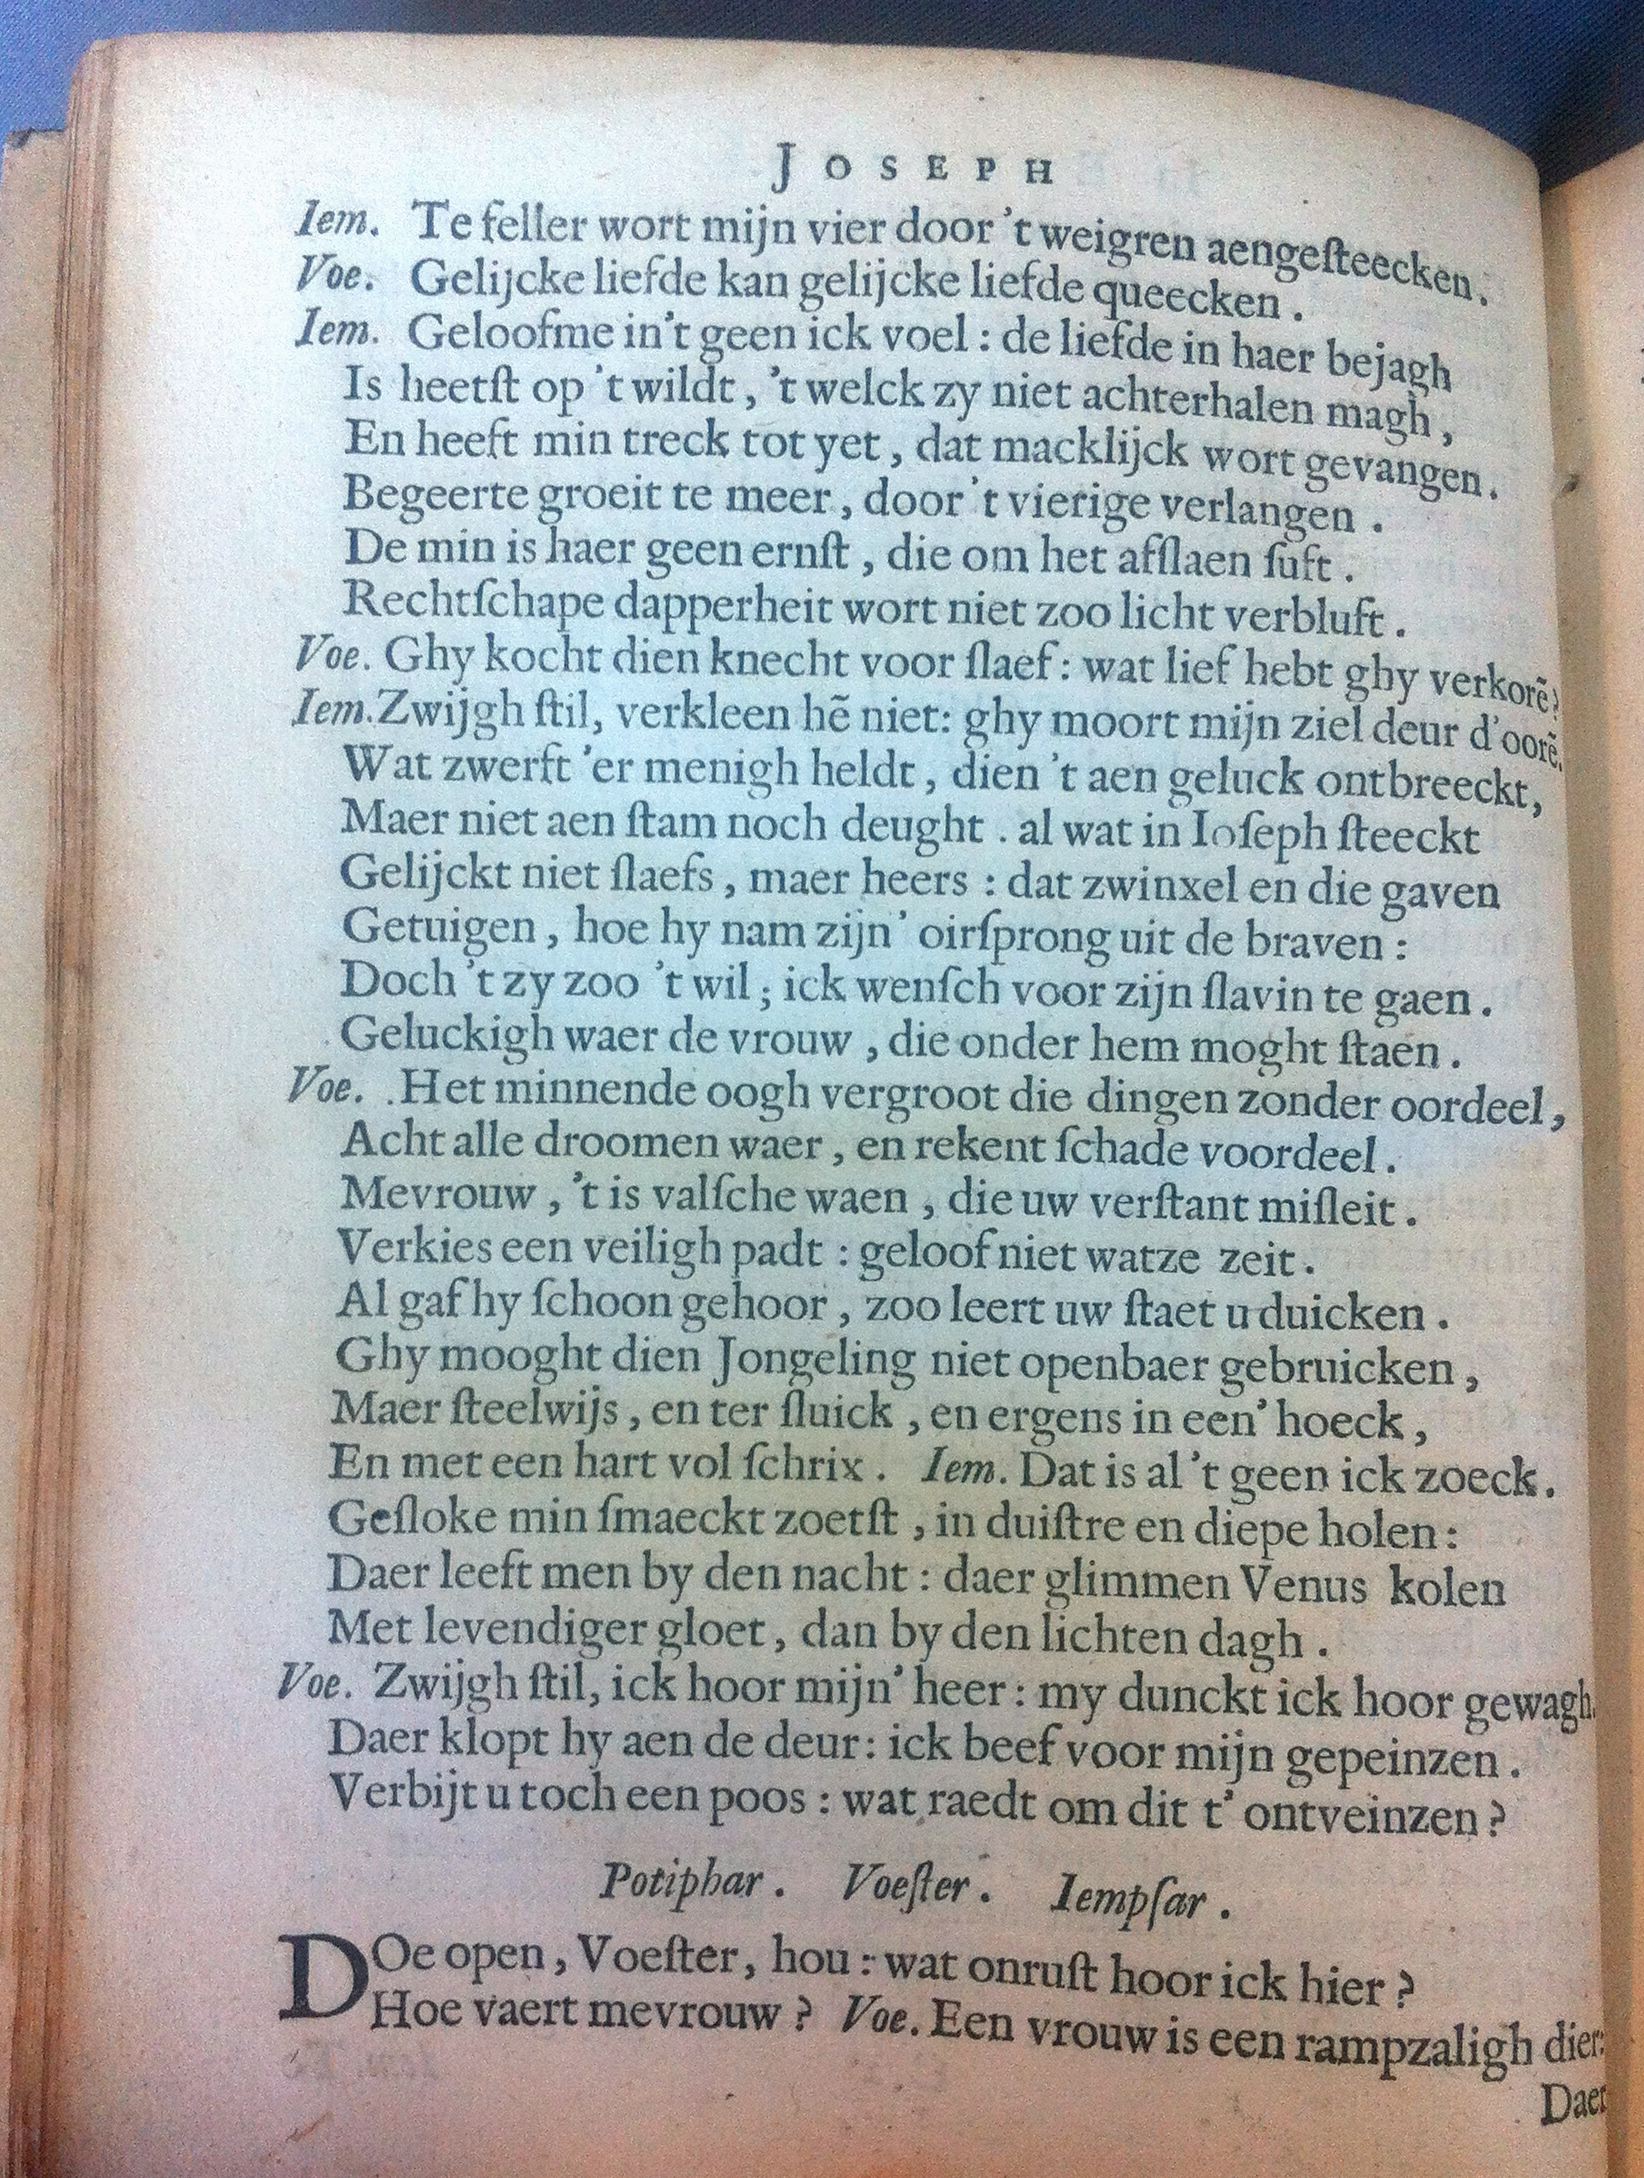 JOSEPH
Iem. Te feller wort mijn vier door 't weigren aengeſteecken.
Voe. Gelijcke liefde kan gelijcke liefde queecken.
Iem. Geloofme in't geen ick voel: de liefde in haer bejagh
Is heetſt op 't wildt, 't welck zy niet achterhalen magh,
En heeft min treck tot yet, dat macklijck wort gevangen.
Begeerte groeit te meer, door 't vierige verlangen.
De min is haer geen ernſt, die om het afſlaen ſuft.
Rechtſchape dapperheit wort niet zoo licht verbluft.
Voe. Ghy kocht dien knecht voor ſlaef: wat lief hebt ghy verkorẽ?
Iem. Zwijgh ſtil, verkleen hẽ niet: ghy moort mijn ziel deur d'oorẽ.
Wat zwerft 'er menigh heldt, dien 't aen geluck ontbreeckt,
Maer niet aen ſtam noch deught. al wat in Ioſeph ſteeckt
Gelijckt niet ſlaefs, maer heers: dat zwinxel en die gaven
Getuigen, hoe hy nam zijn' oirſprong uit de braven:
Doch 't zy zoo 't wil; ick wenſch voor zijn ſlavin te gaen.
Geluckigh waer de vrouw, die onder hem moght ſtaen.
Voe. Het minnende oogh vergroot die dingen zonder oordeel,
Acht alle droomen waer, en rekent ſchade voordeel.
Mevrouw, 't is valſche waen, die uw verſtant miſleit.
Verkies een veiligh padt: geloof niet watze zeit.
Al gaf hy ſchoon gehoor, zoo leert uw ſtaet u duicken.
Ghy mooght dien Jongeling niet openbaer gebruicken,
Maer ſteelwijs, en ter ſluick, en ergens in een' hoeck,
En met een hart vol ſchrix. Iem. Dat is al 't geen ick zoeck.
Geſloke min ſmaeckt zoetſt, in duiſtre en diepe holen:
Daer leeft men by den nacht: daer glimmen Venus kolen
Met levendiger gloet, dan by den lichten dagh.
Voe. Zwijgh ſtil, ick hoor mijn' heer: my dunckt ick hoor gewagh.
Daer klopt hy aen de deur: ick beef voor mijn gepeinzen.
Verbijt u toch een poos: wat raedt om dit t' ontveinzen?
Potiphar. Voeſter. Iempſar.
DOe open, Voeſter, hou: wat onruſt hoor ick hier?
Hoe vaert mevrouw? Voe. Een vrouw is een rampzaligh dier:
Daer